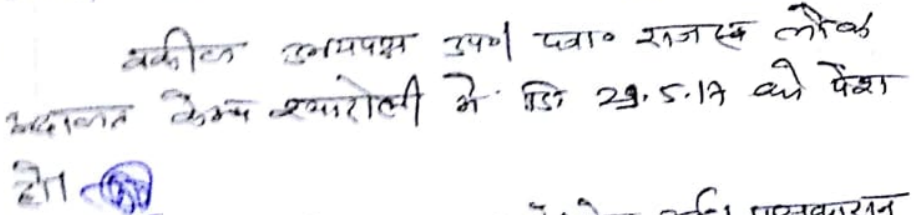 वकील उभयपक्ष उप० पत्रा० राजस्व लोक
अदालत केम्प श्यारोली मे दि 29.5.17 को पेश
हो।